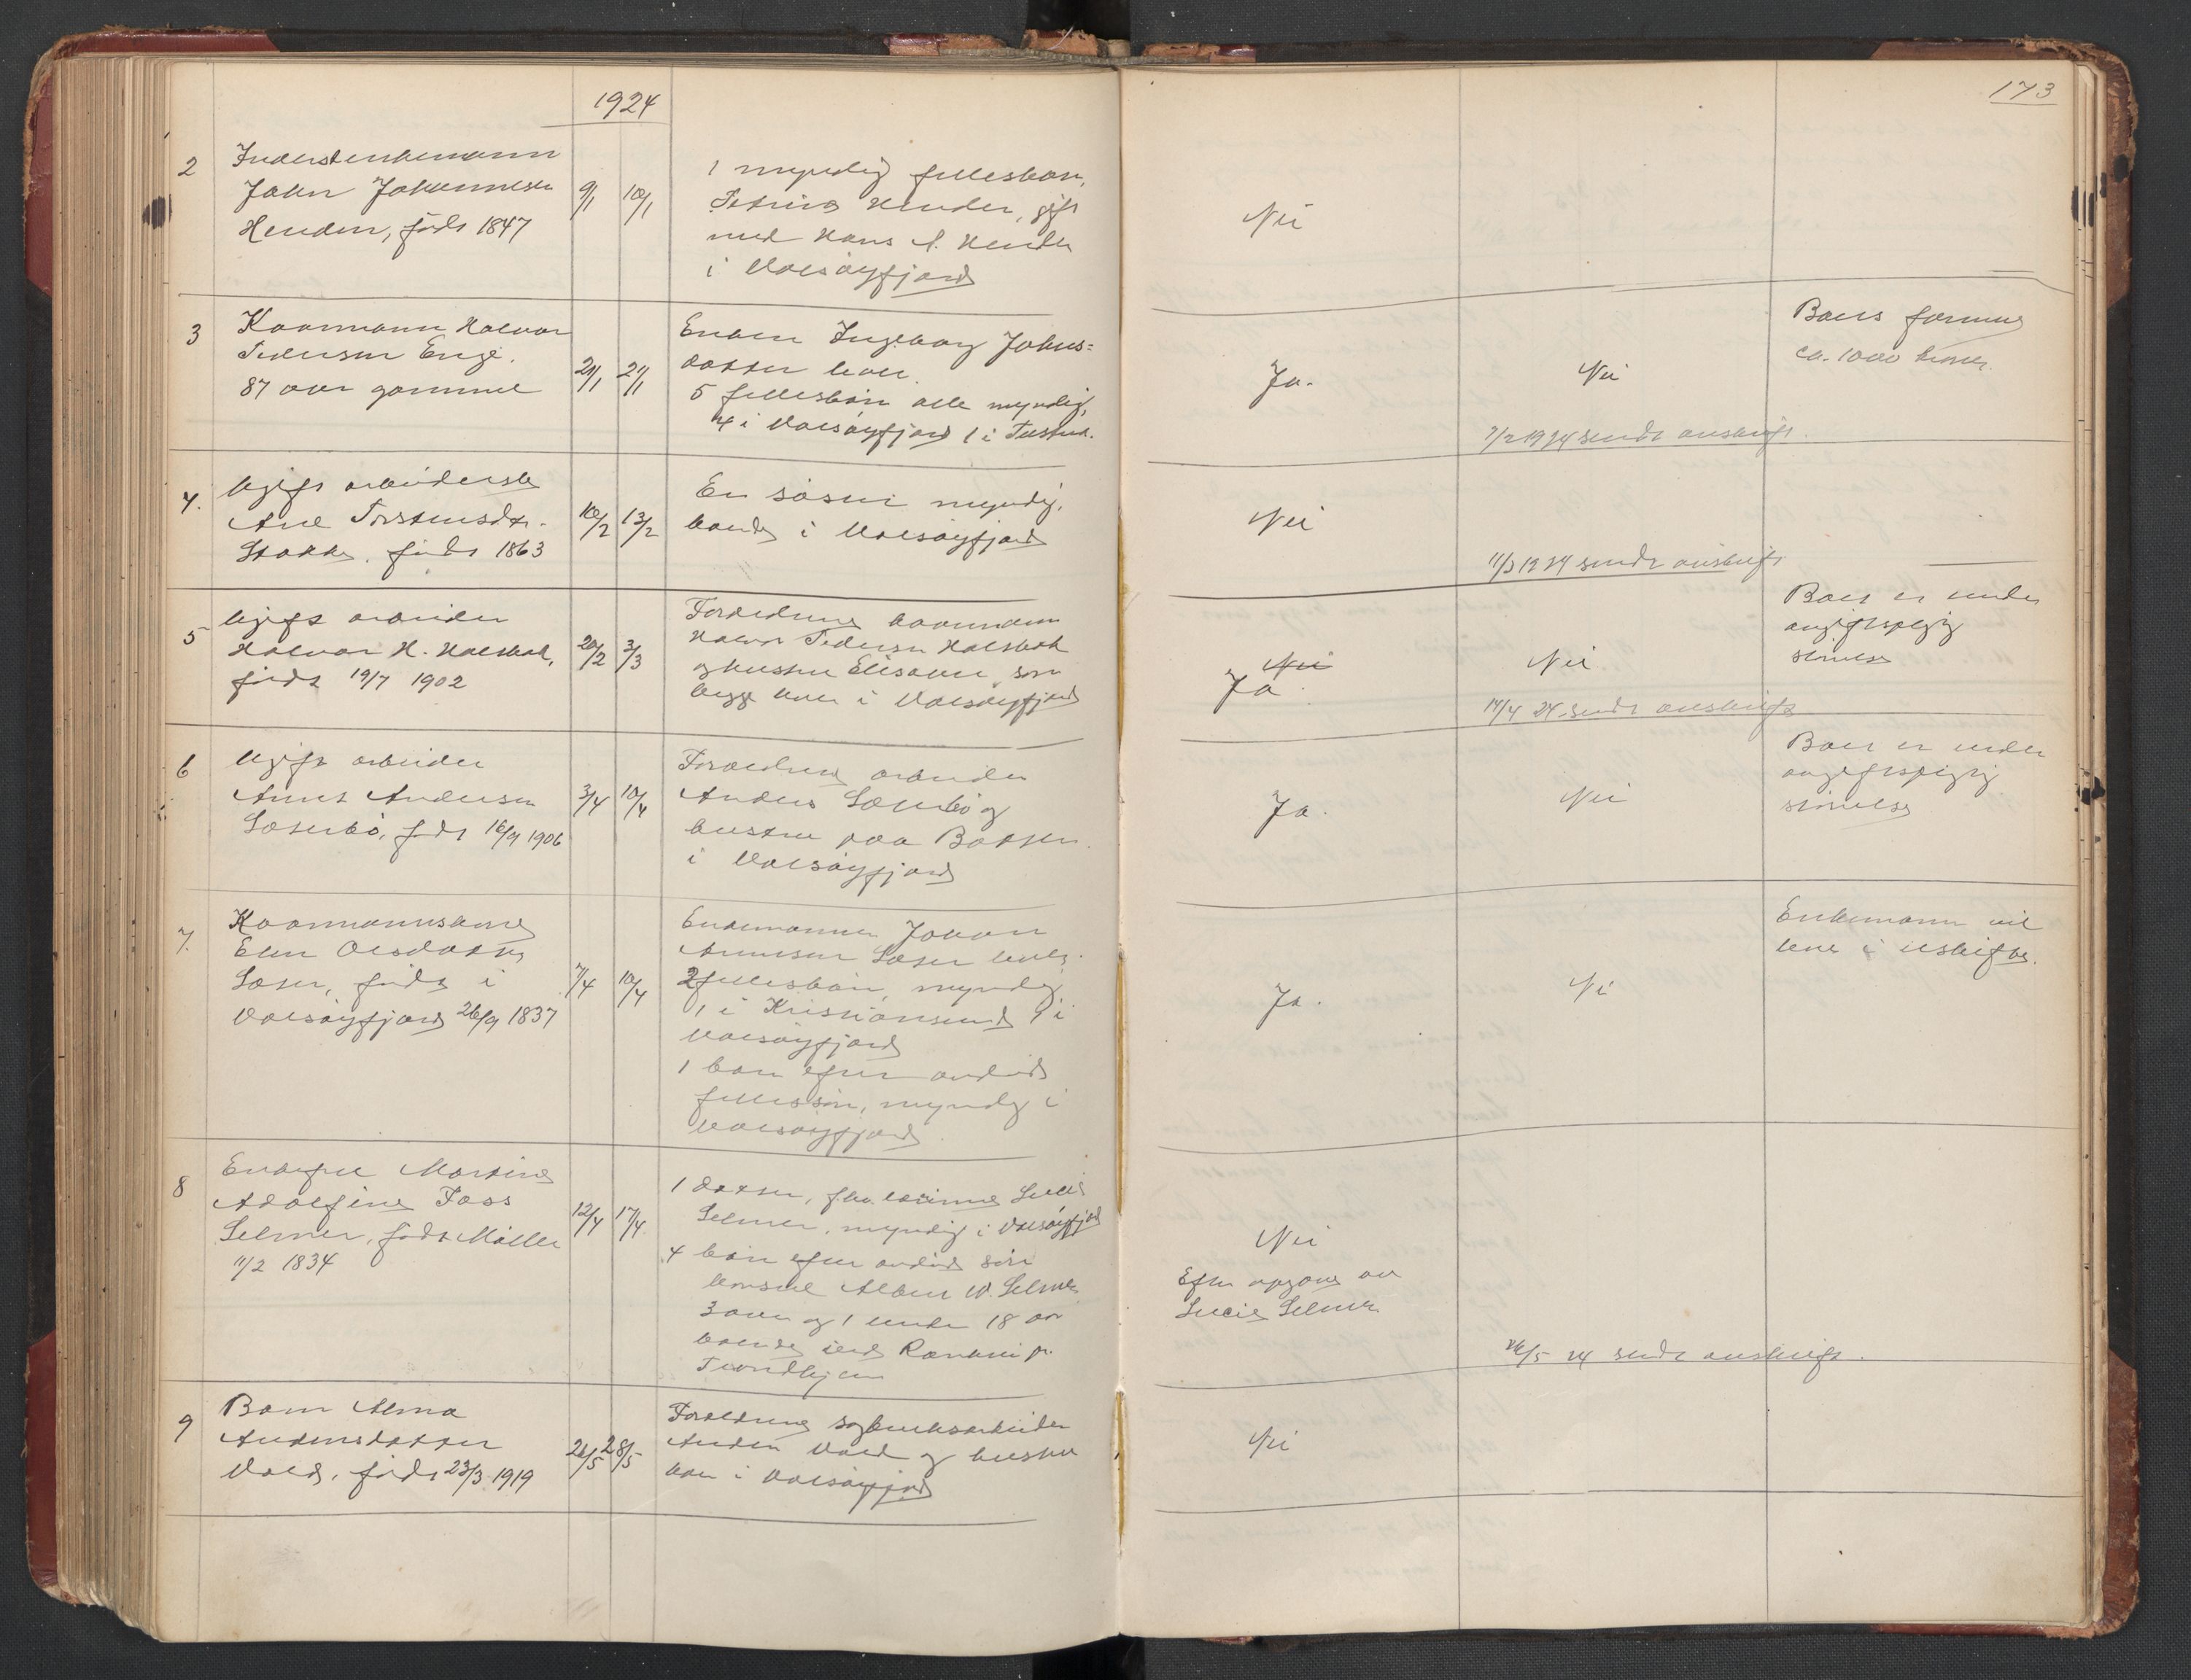 173
1924
2
Inderstenkemann
John Johannesen
Henden, födt 1847
9/1
10/1
1 myndig fellesbarn,
Petrine Henden, gift
med Hans A. Henden
i Valsøyfjord
Nei
3
Kaarmann Halvor
Pedersen Enge.
87 aar gammel
20/1
21/1
Enken Ingeborg Johns=
datter lever.
5 fellesbørn alle myndig,
4 i Valsøyfjord 1 i Tustna.
Ja.
Nei
Boets formue
ca. 1000 kroner.
7/2 1924 sendt avskrift.
4.
Ugift arbeiderske
Ane Torstensdtr.
Stokke, födt 1863
10/2
13/2
En søster myndig,
boende i Valsøyfjord
Nei
11/3 1924 sendt avskrift
5
Ugift arbeider
Halvor H. Halsbak,
født 19/7 1902
20/2
3/3
Forældrene kaarmann
Halvor Pedersen Halsbak
og hustru Elisabet, som
begge bor i Valsøyfjord
Nei
Ja.
Nei
Boet er under
avgiftspligtig
størrelse
14/4 24. sendt avskrift
6
Ugift arbeider
Anders Andersen
Sæterbø, født 16/9 1906
3/4
10/4
Forældrene arbeider
Anders Sæterbø og
hustru paa Botten
i Valsøyfjord
Ja.
Nei
Boet er under
avgiftspligtig
størrelse
7.
Kaarmannskone
Elen Olsdatter
Sæter, född i
Valsøyfjord 26/9 1837
7/4
10/4
Enkemannen Johan
Arnesen Sæter lever.
2 fellesbørn, myndig
1 i Kristiansund 1 i
Valsøyfjord
1 barn efter avdød
fellessøn, myndig i
Valsøyfjord
Ja.
Nei
Enkemann vil
leve i uskiftet.
8
Enkefru Martine
Adolfine Foss
Selmer, født Møller
11/2 1834
12/4
17/4
1 datter, Lucie
Selmer, myndig i Valsøyfjord
4 børn efter avdød søn
konsul Albert W. Selmer
3 over og 1 under 18 aar
boende ved Ranheim pr.
Trondhjem
Nei
Efter opgave av
Lucie Selmer
26/5 24 sendt avskrift.
9
Barn Alma
Andersdatter
Vold, födt 23/3 1919
26/5
28/5
Forældrene sagbruksarbeider
Anders Vold og hustru
bor i Valsøyfjord
Nei